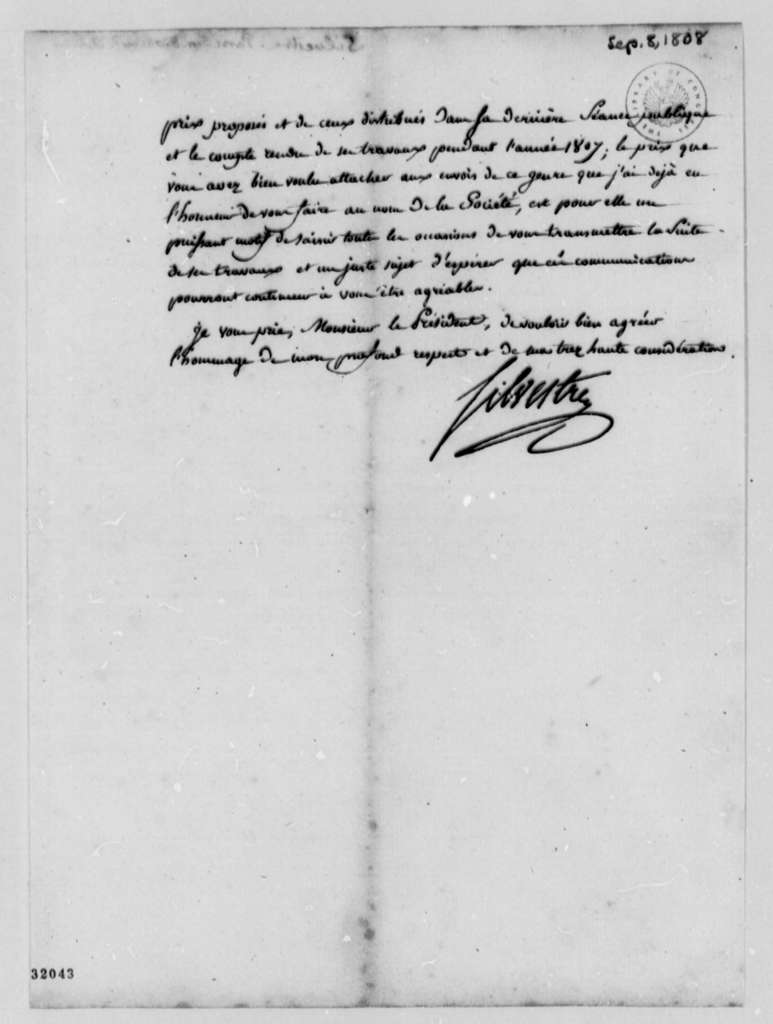 Sep. 8, 1808
prix proposés et de ceux distribués dans sa dernière Séance publique
et le compte rendu de ses travaux pendant l'année 1807; le prix que
vous avez bien voulu attacher aux envois de ce genre que j'ai dejà eu
l'honneur de vous faire au nom de la Société, est pour elle un
puissant motif de saisir toutes les occasions de vous transmettre la Suite
de ses travaux et un juste sujet d'espérer que ces communications
pourront continuer à vous être agréables.
Je vous prie, Monsieur le Président, de vouloir bien agréer
l'hommage de mon profond respect et de ma très haute considération.
Silvestre
32043